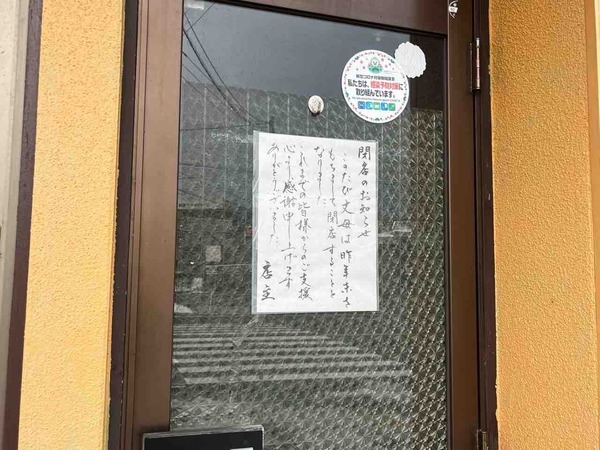 閉店のお知らせ
このたび丈母は昨年末を
もちまして閉店することと
なりました
これまでの皆様からのご支援
心より感謝申し上げます
ありがとうございました
店主
新型コロナ対策取組宣言
私たちは、感染予防対策に
取り組んでいます。